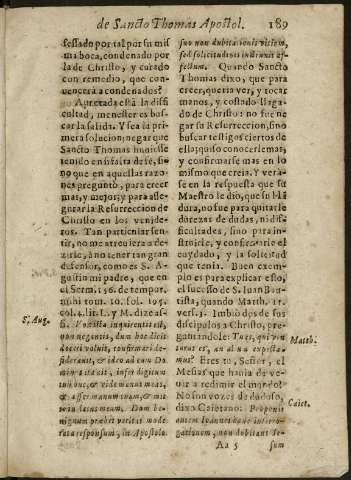 de Sancto Thomas Apostol. 189
fessado por tal por su mis
ma boca, condenado por
la de Christo, y curado
con remedio, que con-
vencerà a condenados?
Apretada està la difi
cultad, menester es bus-
car la salida. Y sea la pri
mera solucion; negar que
Sancto Thomas huuiesse
tenido en si falta de fè, si-
no que en aquellas razo-
nes preguntò, para creer
mas, y mejor; y para asse-
gurar la Resurreccion de
Christo en los venide-
ros. Tan particular sen-
tir, no me atreuiera a de-
zirle, à no tener tan gran
defensor, como es S. Au-
gustin mi padre, que en
el Serm. 156. de tempor.
mihi tom. 10. fol. 195.
col. 4. lit. L. y M. dize as-
si. Vox ista inquirentis est,
non negantis, dum hoc dicit
doceri voluit, confirmari de-
siderauit, & ideo ad eum Do
minus ita cit, infer digitum
tuum huc, & vide manus meas,
& affer manum tuam, & mit
te in latus meum. Dum be-
nignum præbet veritas mode
rata responsum, in Apostolo
S. Aug.
suo non dubitationis vitium,
sed solicitudinis instruxit af-
fectum. Quando Sancto
Thomas dixo, que para
creer, queria ver, y tocar
manos, y costado llaga-
do de Christo: no fue ne
gar su Resurreccion, sino
buscar testigos ciertos de
ella; quiso conocerle mas,
y confirmarse mas en lo
mismo que creia. Y vera-
se en la respuesta que su
Maestro le dio, que su blã
dura, no fue para quitarle
durezas de dudas, ni difi-
cultades, sino para in-
struirle, y conseruarle el
cuydado, y la solicitud
que tenia. Buen exemp-
lo es para explicar esto,
el sucesso de S. Iuan Bau-
tista, quando Matth. 11.
vers. 3. Imbiò dos de sus
discipulos a Christo, pre-
guntandole: Tu es, qui ven
turus es, an alium expecta-
mus? Eres tu, Señor, el
Mesias que hauia de ve-
nir a redimir el mundo?
No son vozes de dudoso,
dixo Caietano: Proponit
autem Ioannes hanc interro-
gationem, non dubitans de-
Matth.
Caiet.
Aa 5 sum